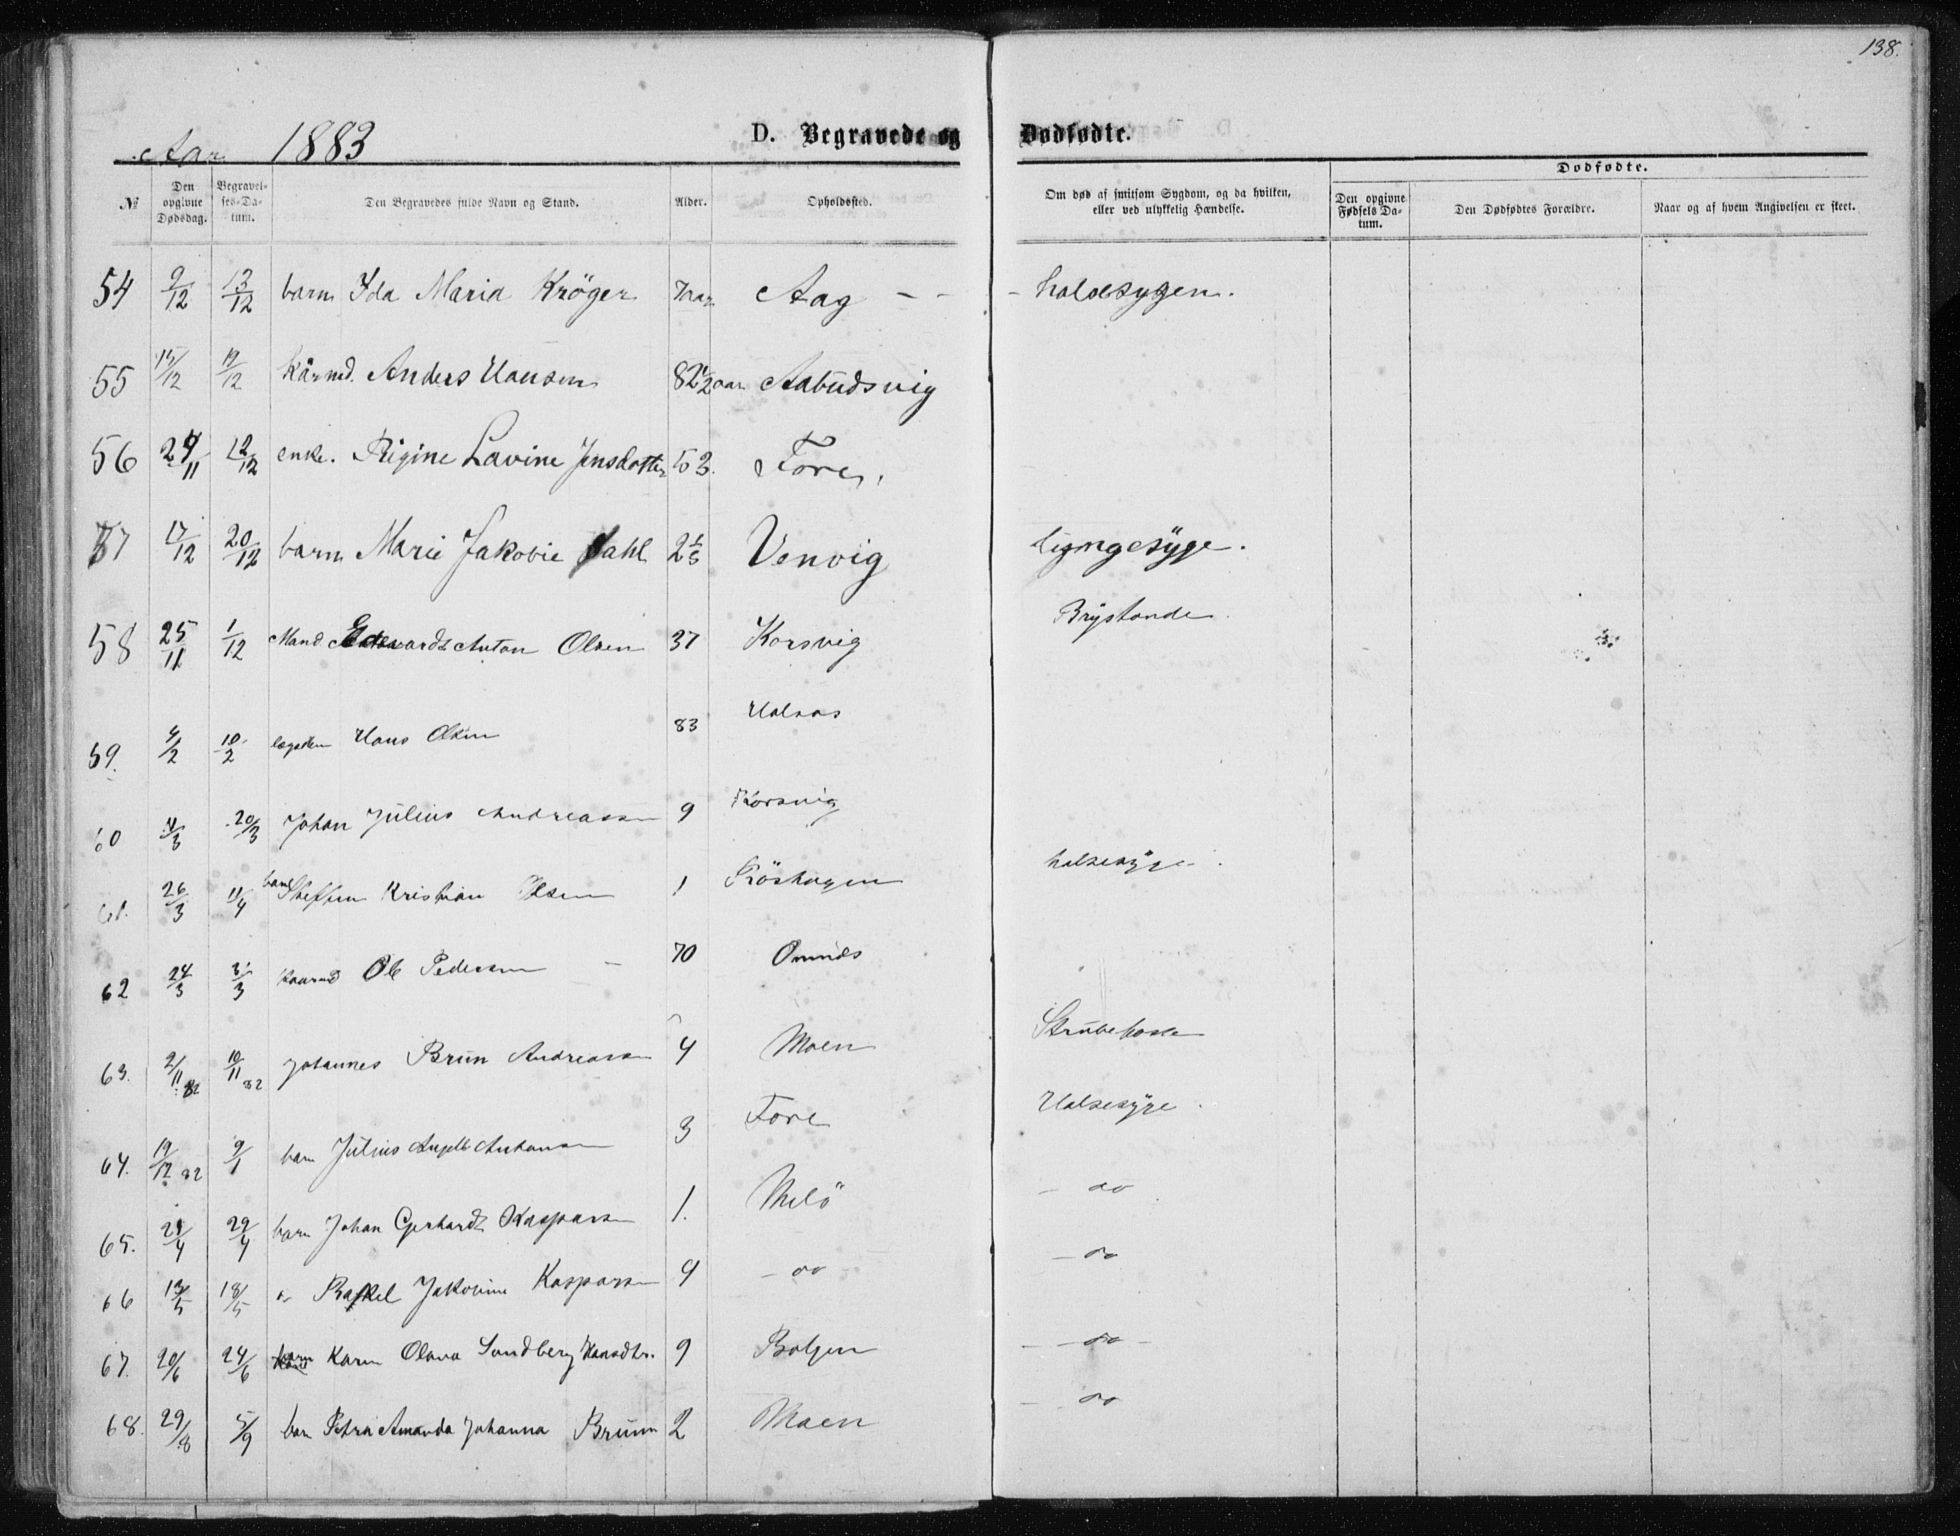 138.
Aar 1883
D. Begravede og Dødfødte.
№ Den opgivne Dødsdag. Begravelses-Datum. Den Begravedes fulde Navn og Stand. Alder. Opholdssted. Om død af smitsom Sygdom, og da hvilken, eller ved ulykkelig Hændelse. Dødfødte. Den opgivne Fødsels Datum. Den Dødfødtes Forældre. Naar og af hvem Angivelsen er skeet.
54 9/12 13/12 barn Ida Maria Kröger 7 aar Aag - - - halsesygen.
55 12 19/12 Kårmd. Anders Hansen 82 1/2 aar Aabudsvig
56 11 12/12 enke. Rigine Lavine Jensdatter 53. Fore.
57 17/12 20/12 barn Marie Jakovie Dahl 2 Venvig
58 25/11 1/12 Mand Anton Olsen 37 Korsvig Brystonde
59. 4/2 10/2 Hans Olsen 83 Halsos
60 3 20/3 Johan Julius Andreassen 9 Korsvig
61. 26/3 11/4 barn Steffen Kristian Olsen 1 Röshagen halsesyge
62 24/3 3 Kaarmd Ole Pedersen - 70 Onnæs
63. 2/11 82 10/11 82 Johannes Brun Andreassen 4 Moen Strubehoste
64. 19/12 82 9/1 barn Julius Angelt Antonsen 3 Fore Halsesyge
65. 4 29/4 barn Johan Gerhardt Kaspersen 1. Melö - do
66 13/5 18/5 Rakel Jakovine Kaspersen 4 - do - do
67. 20/6 24/6 barn Karen Olava Sundberg Hansdtr. 9 Bolgen - do -
68. 29/8 5/9 barn Petra Amanda Johanna Brunn 2 Moen - do